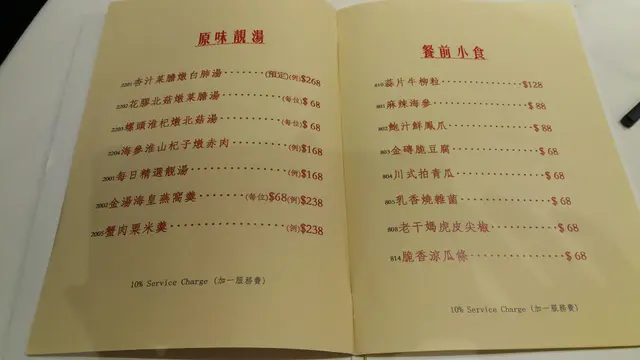 原味靚湯
2201杏汁菜膽燉白肺湯········(預定)(例)$268
2202花膠北菇燉菜膽湯············(每位)$ 68
2203螺頭淮杞燉北菇湯············(每位)$ 68
2204海參淮山杞子燉赤肉············(例)$168
2001每日精選靚湯··················(例)$168
2002金湯海皇燕窩羹·······(每位)$68(例)$238
2005蟹肉粟米羹····················(例)$238
10% Service Charge (加一服務費)
餐前小食
810蒜片牛柳粒················$128
801麻辣海參··················$ 88
802鮑汁鮮鳳爪················$ 88
803金磚脆豆腐················$ 68
804川式拍青瓜················$ 68
805乳香燒雜菌················$ 68
808老干媽虎皮尖椒············$ 68
814脆香涼瓜條················$ 68
10% Service Charge (加一服務費)